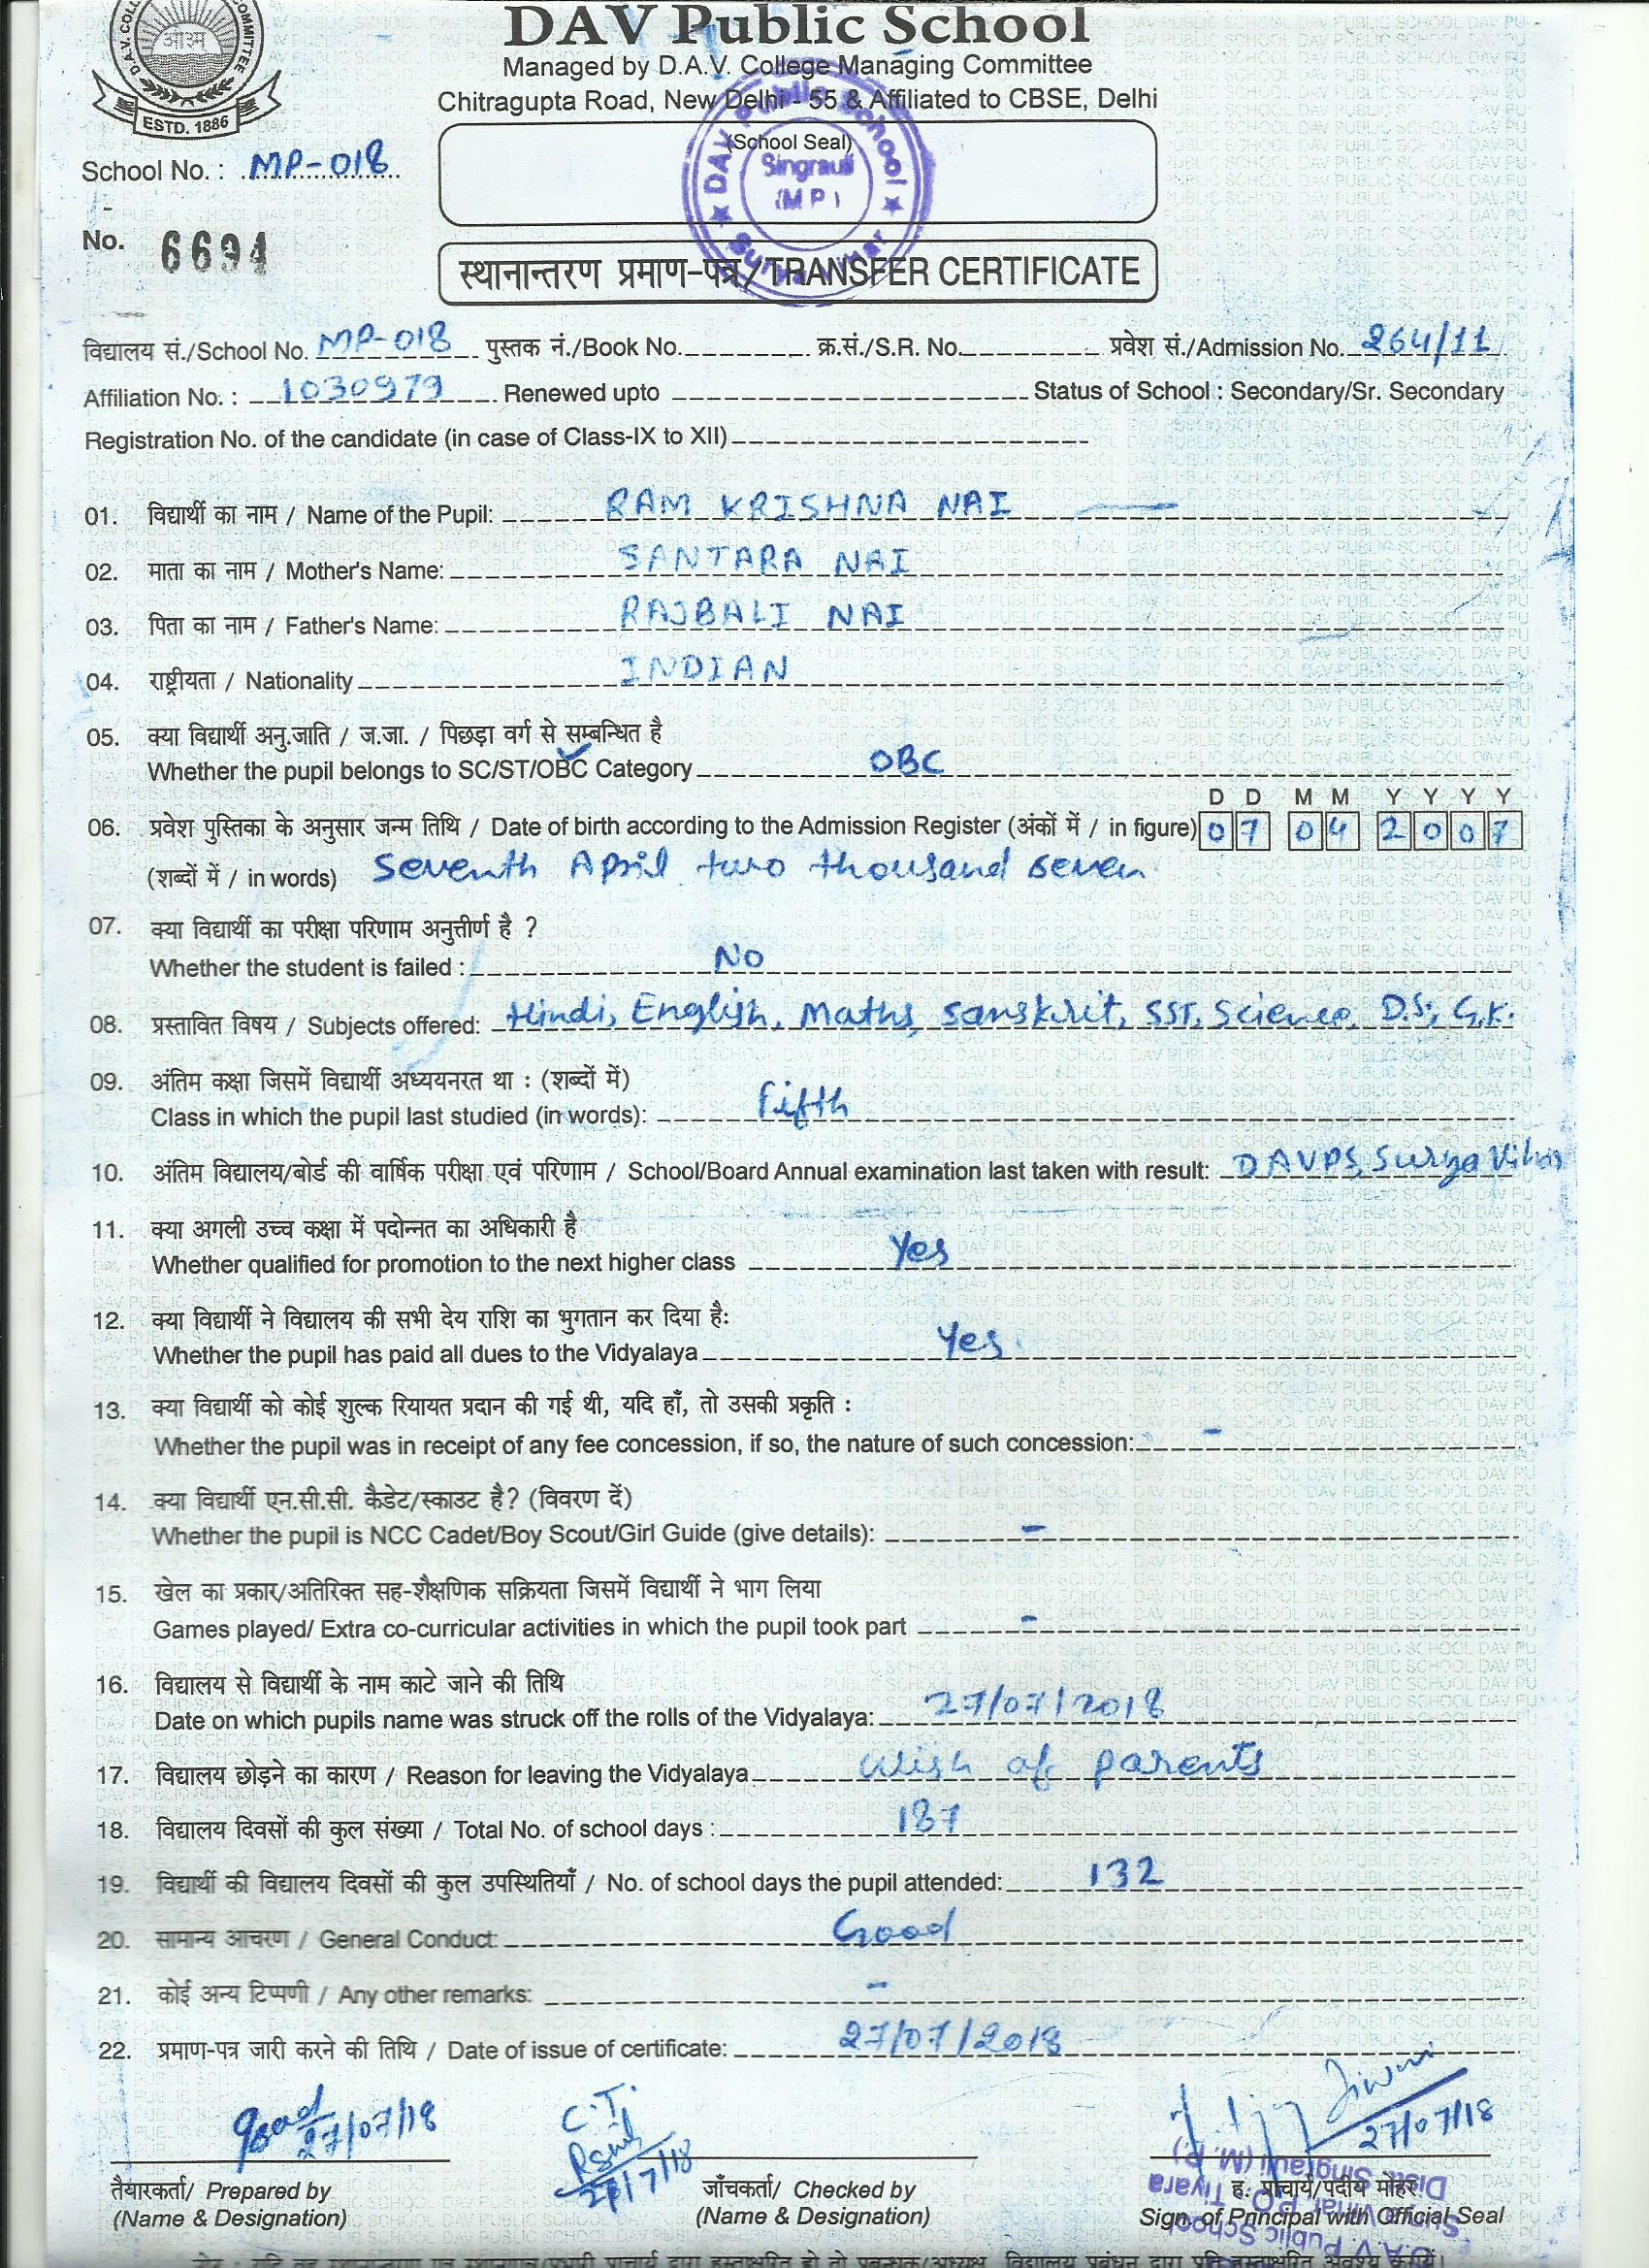 DAV Public School
Managed by D.A.V. College Managing Committee
Chitragupta Road, New Delhi - 55 & Affiliated to CBSE, Delhi
ESTD. 1886
School No. : MP-018
(School Seal)
DAV Public School
Singrauli
(M P)
Surya Vihar
No. 6694
स्थानान्तरण प्रमाण-पत्र/TRANSFER CERTIFICATE
विद्यालय सं./School No. MP-018 पुस्तक नं./Book No. क्र.सं./S.R. No. प्रवेश सं./Admission No. 264/11
Affiliation No. : 1030979 Renewed upto Status of School : Secondary/Sr. Secondary
Registration No. of the candidate (in case of Class-IX to XII)
01. विद्यार्थी का नाम / Name of the Pupil: RAM KRISHNA NAI
02. माता का नाम / Mother's Name: SANTARA NAI
03. पिता का नाम / Father's Name: RAJBALI NAI
04. राष्ट्रीयता / Nationality INDIAN
05. क्या विद्यार्थी अनु.जाति / ज.जा. / पिछड़ा वर्ग से सम्बन्धित है
Whether the pupil belongs to SC/ST/OBC Category OBC
D D M M Y Y Y Y
06. प्रवेश पुस्तिका के अनुसार जन्म तिथि / Date of birth according to the Admission Register (अंकों में / in figure) 07 04 2007
(शब्दों में / in words) Seventh April two thousand seven
07. क्या विद्यार्थी का परीक्षा परिणाम अनुत्तीर्ण है ?
Whether the student is failed : No
08. प्रस्तावित विषय / Subjects offered: Hindi, English, Maths, Sanskrit, SST, Science, D.S., G.K.
09. अंतिम कक्षा जिसमें विद्यार्थी अध्ययनरत था : (शब्दों में)
Class in which the pupil last studied (in words): Fifth
10. अंतिम विद्यालय/बोर्ड की वार्षिक परीक्षा एवं परिणाम / School/Board Annual examination last taken with result: DAVPS, Surya Vihar
11. क्या अगली उच्च कक्षा में पदोन्नत का अधिकारी है
Whether qualified for promotion to the next higher class Yes
12. क्या विद्यार्थी ने विद्यालय की सभी देय राशि का भुगतान कर दिया है:
Whether the pupil has paid all dues to the Vidyalaya Yes
13. क्या विद्यार्थी को कोई शुल्क रियायत प्रदान की गई थी, यदि हाँ, तो उसकी प्रकृति :
Whether the pupil was in receipt of any fee concession, if so, the nature of such concession: -
14. क्या विद्यार्थी एन.सी.सी. कैडेट/स्काउट है? (विवरण दें)
Whether the pupil is NCC Cadet/Boy Scout/Girl Guide (give details): -
15. खेल का प्रकार/अतिरिक्त सह-शैक्षणिक सक्रियता जिसमें विद्यार्थी ने भाग लिया
Games played/ Extra co-curricular activities in which the pupil took part -
16. विद्यालय से विद्यार्थी के नाम काटे जाने की तिथि
Date on which pupils name was struck off the rolls of the Vidyalaya: 27/07/2018
17. विद्यालय छोड़ने का कारण / Reason for leaving the Vidyalaya Wish of parents
18. विद्यालय दिवसों की कुल संख्या / Total No. of school days : 187
19. विद्यार्थी की विद्यालय दिवसों की कुल उपस्थितियाँ / No. of school days the pupil attended: 132
20. सामान्य आचरण / General Conduct: Good
21. कोई अन्य टिप्पणी / Any other remarks: -
22. प्रमाण-पत्र जारी करने की तिथि / Date of issue of certificate: 27/07/2018
27/07/18 C.T. 27/7/18 27/07/18
तैयारकर्ता/ Prepared by जाँचकर्ता/ Checked by ह. प्राचार्य/पदीय मोहर
(Name & Designation) (Name & Designation) Sign. of Principal with Official Seal
D.A.V Public School
Surya Vihar P.O. Tiyara
Distt. Singrauli (M.P.)